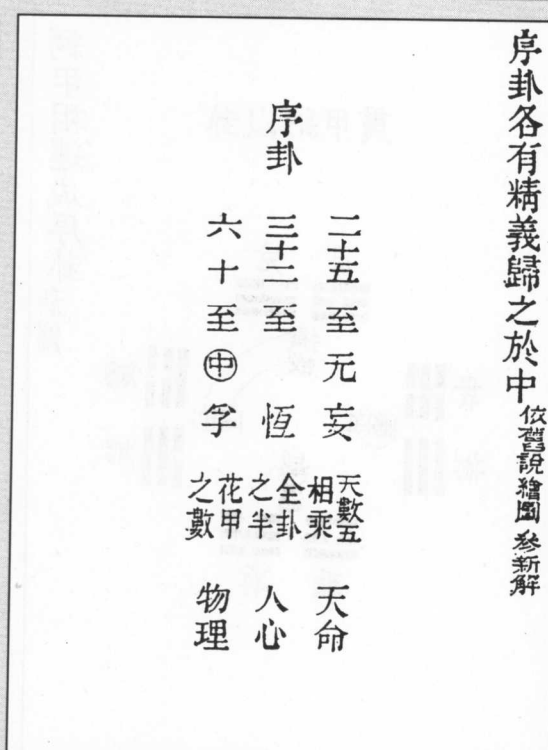 序卦各有精義歸之於中 依舊說繪圖 參新解
序卦
二十五至无妄 天數五相乘 天命
三十二至恆 全卦之半 人心
六十至㊥孚 花甲之數 物理